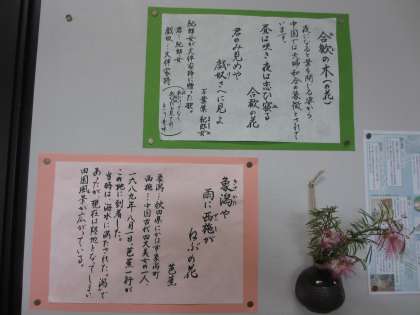 合歓の木(の花)
夜になると葉を閉じる姿から、
中国では夫婦和合の象徴とされて
います。
昼は咲き夜は恋ひ寝る
合歓の花
君のみ見めや
戯奴さへに見よ
万葉集 紀郎女
紀郎女が大伴家持に贈った歌。
君…紀郎女
戯奴…大伴家持
象潟や
雨に西施が
ねぶの花
芭蕉
象潟…秋田県にかほ市象潟町
西施…中国古代四大美女の一人
一六八九年八月一日、芭蕉一行が
この地に到着した。
当時は海水に満たされた「潟」で
あったが、現在は陸地となってしまい
田園風景が広がっている。